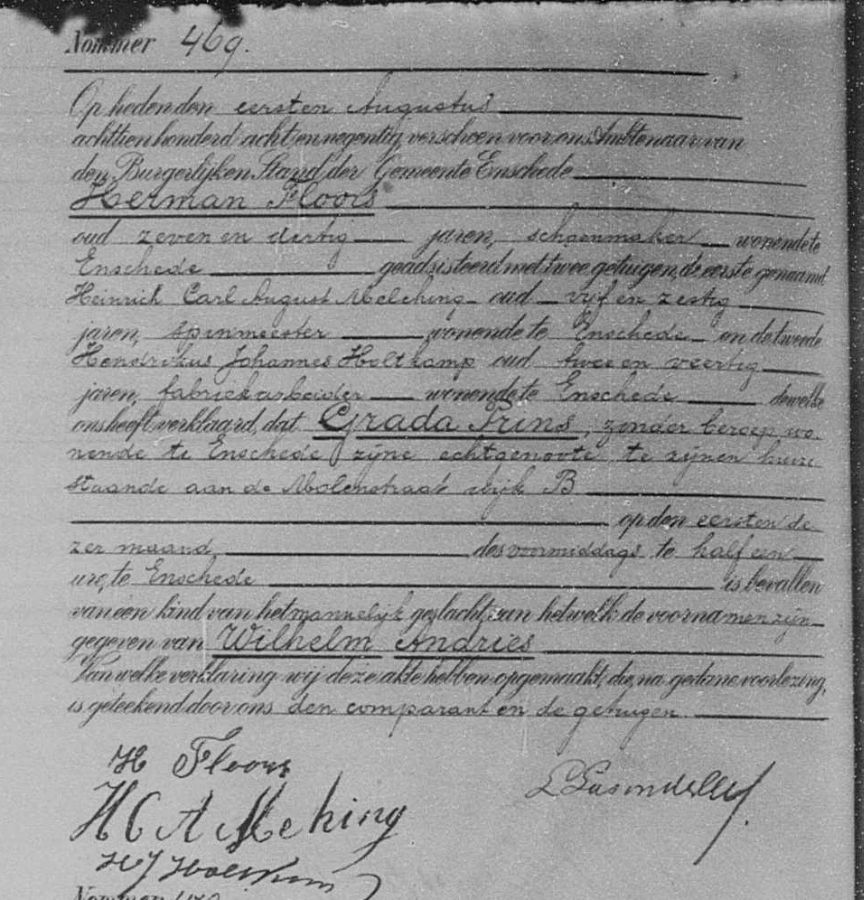 Nommer 469.
Op heden den eersten Augustus
achttienhonderd acht en negentig, verscheen voor ons Ambtenaar van
den Burgerlijken Stand der Gemeente Enschede
Herman Floors
oud zeven en dertig jaren, schoenmaker wonende te
Enschede geadsisteerd met twee getuigen, de eerste genaamd
Heinrich Carl August Melching oud vijf en zestig
jaren, spinmeester wonende te Enschede en de tweede
Hendrikus Johannes Holtkamp oud twee en veertig
jaren, fabriekarbeider wonende te Enschede dewelke
ons heeft verklaard, dat Grada Prins, zonder beroep wo-
nende te Enschede zijne echtgenoote te zijnen huize
staande aan de Molenstraat wijk B
op den eersten de-
zer maand, des voormiddags te half een
ure, te Enschede is bevallen
van een kind van het mannelijk geslacht, aan hetwelk de voornamen zijn
gegeven van Wilhelm Andries
Van welke verklaring wij deze akte hebben opgemaakt, die, na gedane voorlezing,
is geteekend door ons den comparant en de getuigen.
H Floors
H C A Melching
H J Holtkamp
Nommer 470